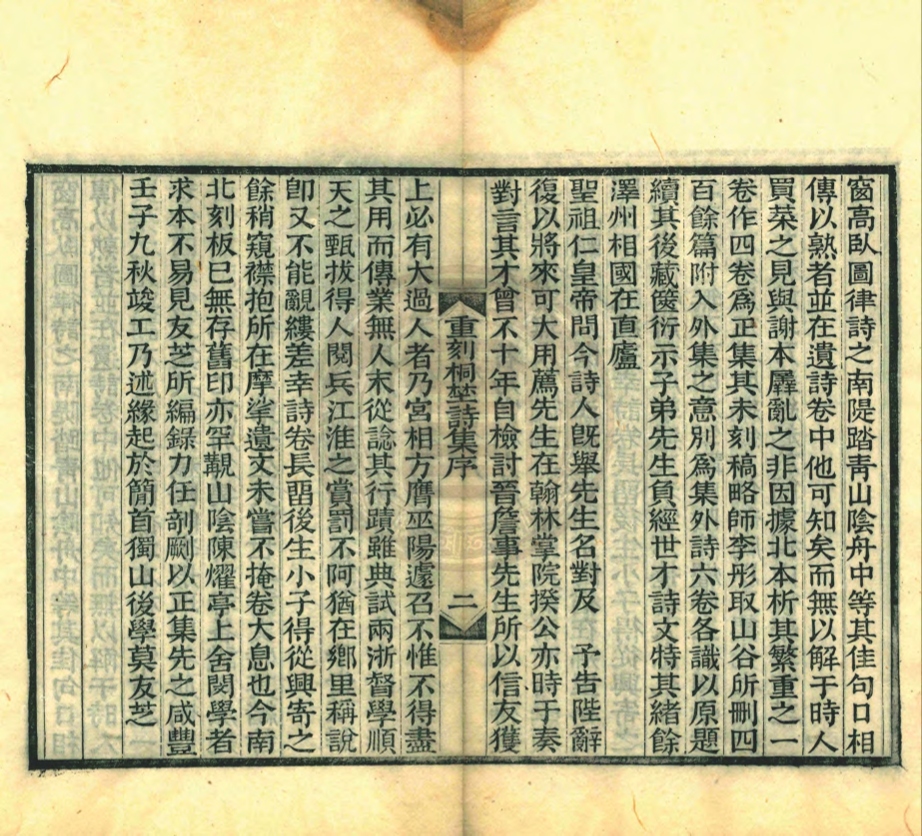 窗高臥圖律詩之南隄踏青山陰舟中等其佳句口相
傳以熟者並在遺詩卷中他可知矣而無以解于時人
買菜之見與謝本羼亂之非因據北本析其繁重之一
卷作四卷為正集其未刻稿略師李彤取山谷所刪四
百餘篇附入外集之意別為集外詩六卷各識以原題
續其後藏篋衍示子弟先生負經世才詩文特其緒餘
澤州相國在直廬
聖祖仁皇帝問今詩人旣舉先生名對及 予告陛辭
復以將來可大用薦先生在翰林掌院揆公亦時于奏
對言其才曾不十年自檢討晉詹事先生所以信友獲
重刻桐埜詩集序 二
上必有大過人者乃宮相方膺巫陽遽召不惟不得盡
其用而傳業無人末從諗其行蹟雖典試兩浙督學順
天之甄拔得人閱兵江淮之賞罰不阿猶在鄉里稱說
卽又不能覼縷差幸詩卷長畱後生小子得從興寄之
餘稍窺襟抱所在摩挲遺文未嘗不掩卷大息也今南
北刻板已無存舊印亦罕覯山陰陳燿亭上舍閔學者
求本不易見友芝所編錄力任剞劂以正集先之咸豐
壬子九秋竣工乃述緣起於簡首獨山後學莫友芝